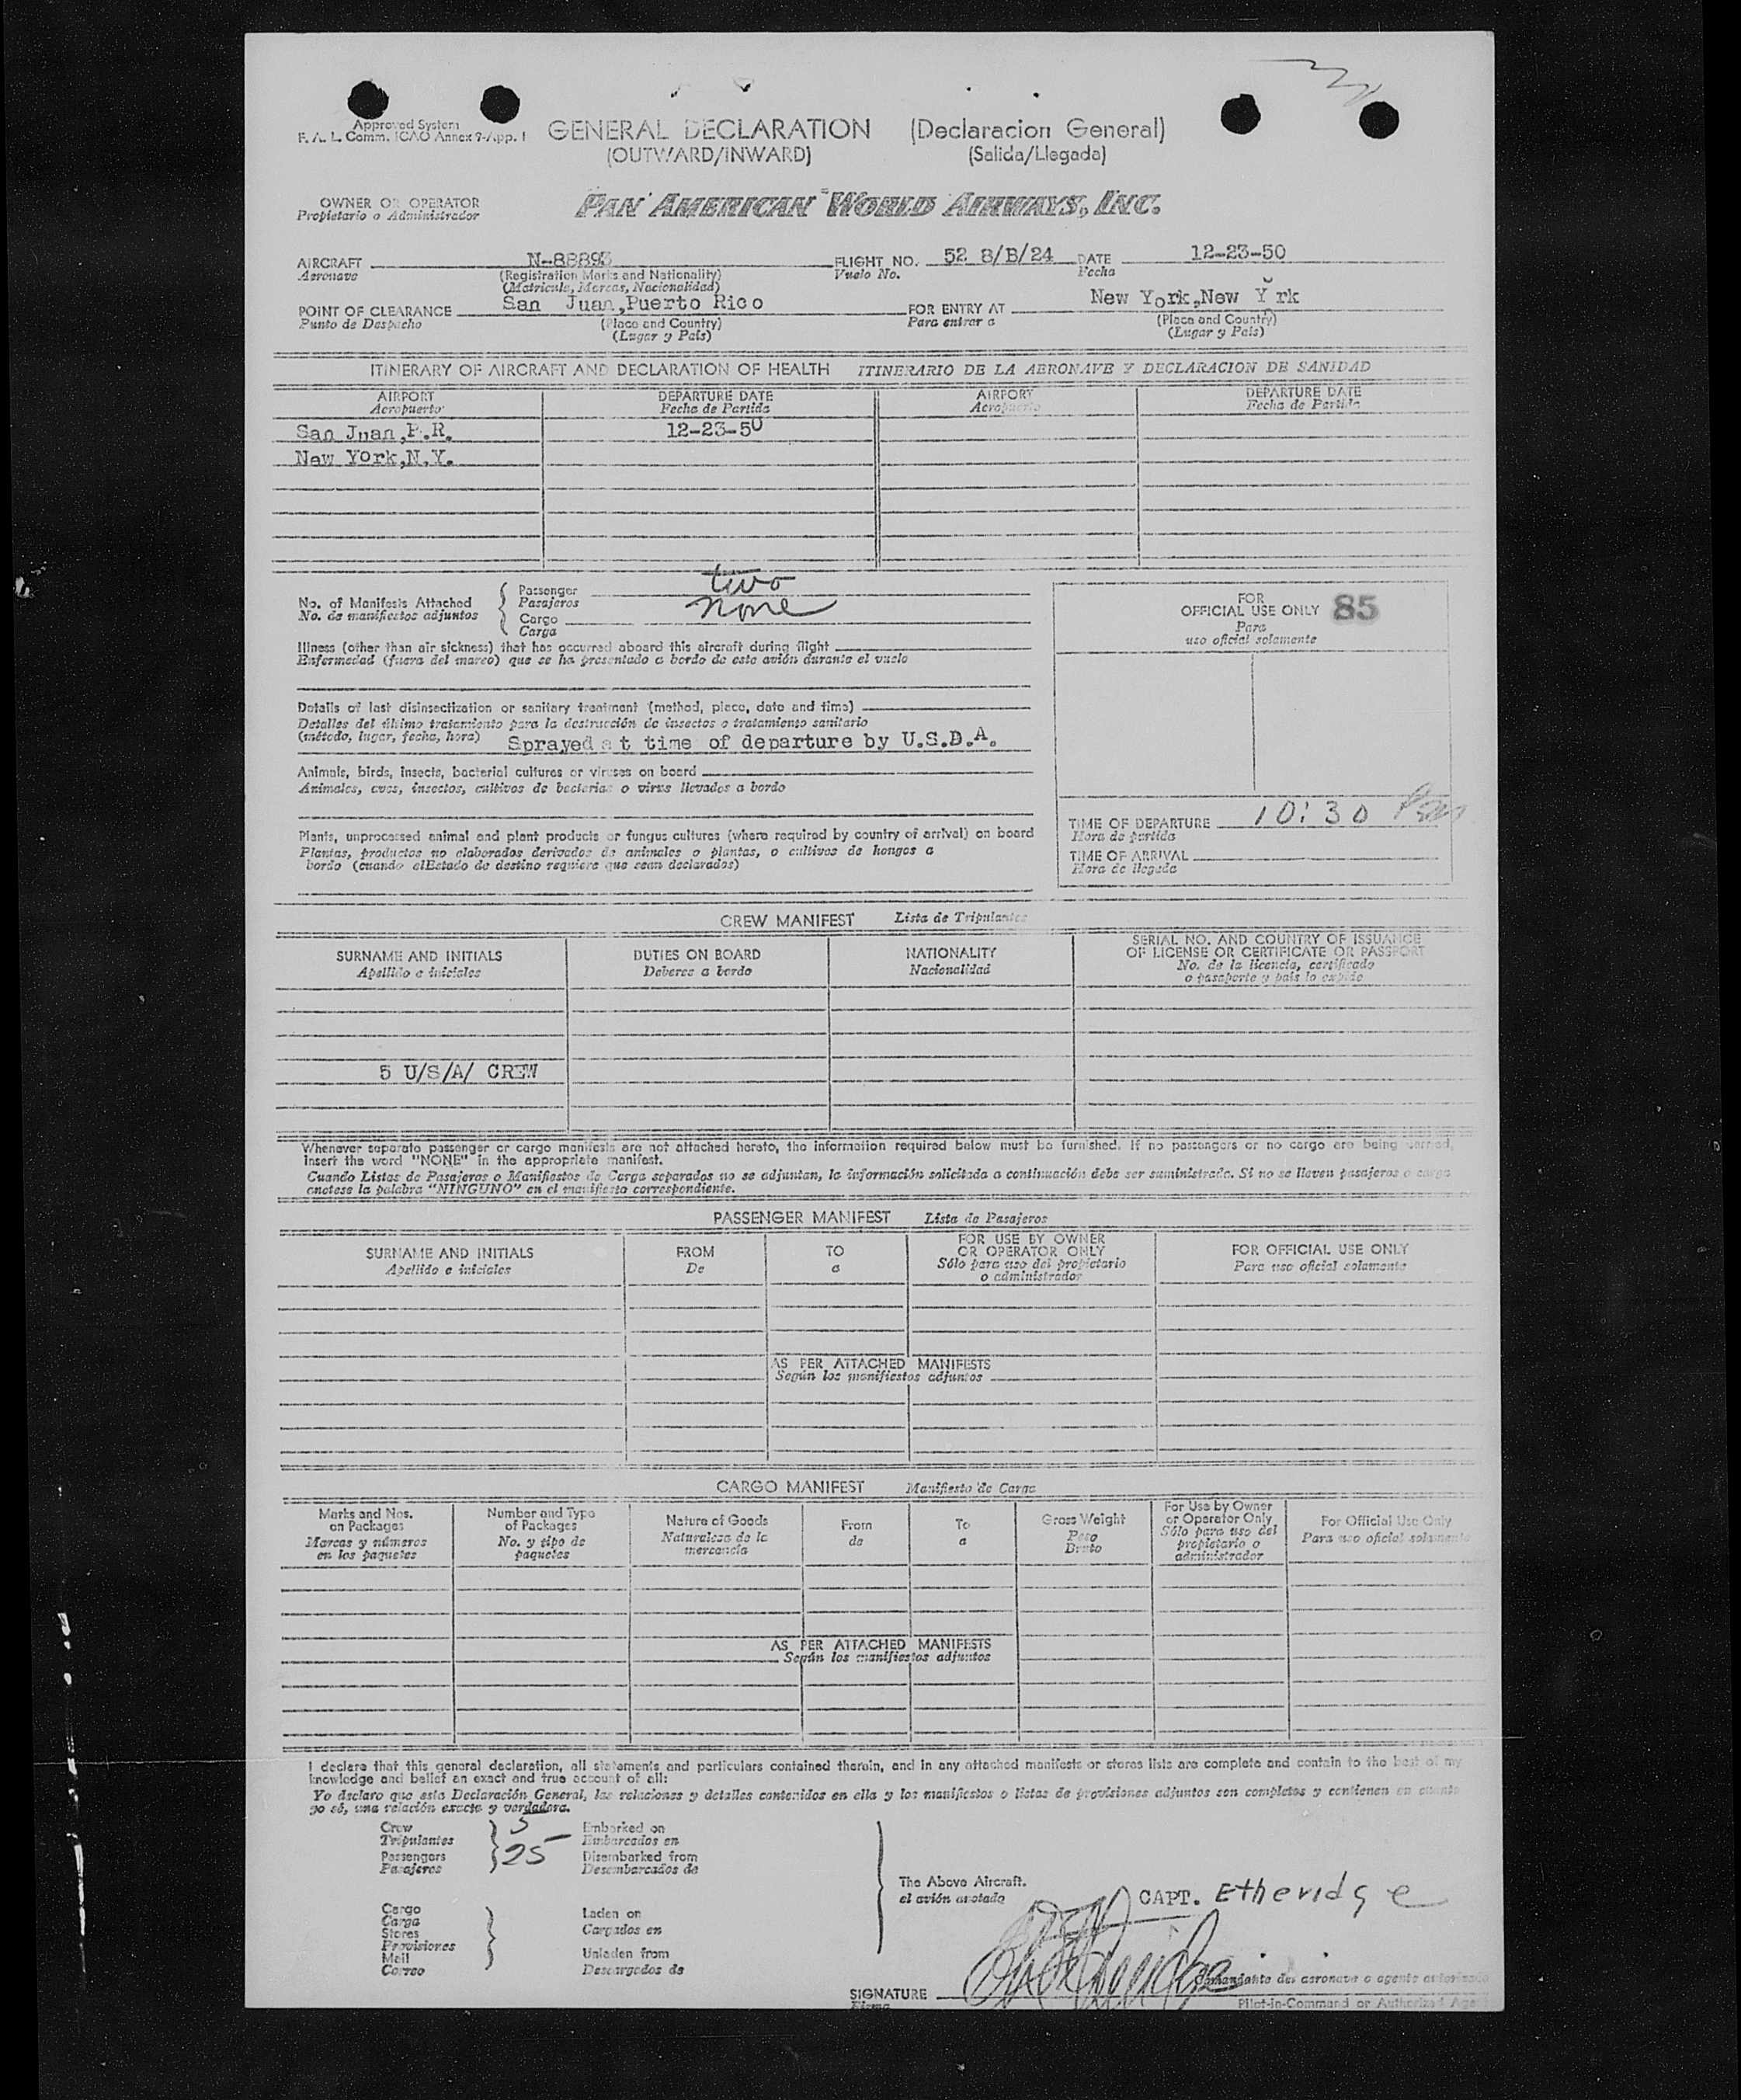 Approved System
F. A. L. Comm. ICAO Annex 9-App. I
GENERAL DECLARATION (Declaracion General)
(OUTWARD/INWARD) (Salida/Llegada)
OWNER OR OPERATOR
Propietario o Administrador
PAN AMERICAN WORLD AIRWAYS, INC.
AIRCRAFT N-88893 FLIGHT NO. 52 8/B/24 DATE 12-23-50
Aeronave (Registration Marks and Nationality) Vuelo No. Fecha
(Matricula, Marcas, Nacionalidad)
POINT OF CLEARANCE San Juan,Puerto Rico FOR ENTRY AT New York,New Y rk
Punto de Despacho (Place and Country) Para entrar a (Place and Country)
(Lugar y País) (Lugar y País)
ITINERARY OF AIRCRAFT AND DECLARATION OF HEALTH ITINERARIO DE LA AERONAVE Y DECLARACION DE SANIDAD
AIRPORT DEPARTURE DATE AIRPORT DEPARTURE DATE
Aeropuerto Fecha de Partida Aeropuerto Fecha de Partida
San Juan,P.R. 12-23-50
New York,N.Y.
No. of Manifests Attached
No. de manifiestos adjuntos
Passenger two
Pasajeros
Cargo none
Carga
FOR
OFFICIAL USE ONLY 85
Para
uso oficial solamente
Illness (other than air sickness) that has occurred aboard this aircraft during flight
Enfermedad (fuera del mareo) que se ha presentado a bordo de este avión durante el vuelo
Details of last disinsectization or sanitary treatment (method, place, date and time)
Detalles del último tratamiento para la destrucción de insectos o tratamiento sanitario
(método, lugar, fecha, hora) Sprayed at time of departure by U.S.D.A.
Animals, birds, insects, bacterial cultures or viruses on board
Animales, aves, insectos, cultivos de bacterias o virus llevados a bordo
Plants, unprocessed animal and plant products or fungus cultures (where required by country of arrival) on board
Plantas, productos no elaborados derivados de animales o plantas, o cultivos de hongos a
bordo (cuando elEstado de destino requiere que sean declarados)
TIME OF DEPARTURE 10:30 Pm
Hora de partida
TIME OF ARRIVAL
Hora de llegada
CREW MANIFEST Lista de Tripulantes
SURNAME AND INITIALS DUTIES ON BOARD NATIONALITY SERIAL NO. AND COUNTRY OF ISSUANCE
OF LICENSE OR CERTIFICATE OR PASSPORT
Apellido e iniciales Deberes a bordo Nacionalidad No. de la licencia, certificado
o pasaporte y país lo expide
5 U/S/A/ CREW
Whenever separate passenger or cargo manifests are not attached hereto, the information required below must be furnished. If no passengers or no cargo are being carried,
insert the word "NONE" in the appropriate manifest.
Cuando Listas de Pasajeros o Manifiestos de Carga separados no se adjuntan, la información solicitada a continuación debe ser suministrada. Si no se lleven pasajeros o carga
anotese la palabra "NINGUNO" en el manifiesto correspondiente.
PASSENGER MANIFEST Lista de Pasajeros
SURNAME AND INITIALS FROM TO FOR USE BY OWNER
OR OPERATOR ONLY FOR OFFICIAL USE ONLY
Apellido e iniciales De a Sólo para uso del propietario
o administrador Para uso oficial solamente
AS PER ATTACHED MANIFESTS
Según los manifiestos adjuntos
CARGO MANIFEST Manifiesto de Carga
Marks and Nos.
on Packages
Marcas y números
en los paquetes
Number and Type
of Packages
No. y tipo de
paquetes
Nature of Goods
Naturaleza de la
mercancía
From
de
To
a
Gross Weight
Peso
Bruto
For Use by Owner
or Operator Only
Sólo para uso del
propietario o
administrador
For Official Use Only
Para uso oficial solamente
AS PER ATTACHED MANIFESTS
Según los manifiestos adjuntos
I declare that this general declaration, all statements and particulars contained therein, and in any attached manifests or stores lists are complete and contain to the best of my
knowledge and belief an exact and true account of all:
Yo declaro que esta Declaración General, las relaciones y detalles contenidos en ella y los manifiestos o listas de provisiones adjuntos son completos y contienen en cuanto
yo sé, una relación exacta y verdadera.
Crew 5 Embarked on
Tripulantes Embarcados en
Passengers 25 Disembarked from
Pasajeros Desembarcados de
The Above Aircraft.
el avión anotado
CAPT. Etheridge
Cargo
Carga
Stores
Provisiones
Mail
Correo
Laden on
Cargados en
Unladen from
Descargados de
Comandante del aeronave o agente autorizado
SIGNATURE
Firma
Pilot-in-Command or Authorized Agent